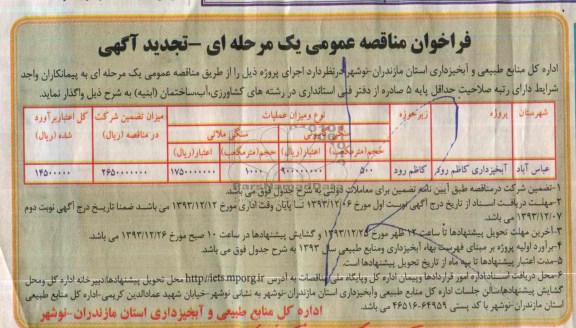 فراخوان مناقصه عمومی یک مرحله ای -تجدید آگهی
اداره کل منابع طبیعی و آبخیزداری استان مازندران-نوشهر درنظردارد اجرای پروژه ذیل را از طریق مناقصه عمومی یک مرحله ای به پیمانکاران واجد
شرایط دارای رتبه صلاحیت حداقل پایه ۵ صادره از دفتر فنی استانداری در رشته های کشاورزی،آب،ساختمان (ابنیه) به شرح ذیل واگذار نماید.
شهرستان پروژه زیرحوزه نوع ومیزان عملیات میزان تضمین شرکت در مناقصه (ریال) کل اعتباربرآورد شده (ریال)
سنگی ملاتی
حجم(مترمکعب) اعتبار(ریال) حجم(مترمکعب) اعتبار(ریال)
عباس آباد آبخیزداری کاظم رود کاظم رود ۵۰۰ ۹۰۰۰۰۰۰۰۰ ۱۰۰۰ ۱۷۵۰۰۰۰۰۰۰
۱-تضمین شرکت درمناقصه طبق آیین نامه تضمین برای معاملات دولتی به شرح جدول فوق می باشد.
۲-مهلت دریافت اسناد از تاریخ درج آگهی نوبت اول مورخ ۱۳۹۳/۱۲/۰۶ تا پایان وقت اداری مورخ ۱۳۹۳/۱۲/۱۲ می باشد ضمنا تاریخ درج آگهی نوبت دوم
۱۳۹۳/۱۲/۰۷ می باشد.
۳-آخرین مهلت تحویل پیشنهادها تا ساعت ۱۲ ظهر مورخ ۱۳۹۳/۱۲/۲۵ و گشایش پیشنهادها در ساعت ۱۰ صبح مورخ ۱۳۹۳/۱۲/۲۶ می باشد.
۴-برآورد اولیه پروژه بر مبنای فهرست بهاء آبخیزداری ومنابع طبیعی سال ۱۳۹۳ به شرح جدول فوق می باشد.
۵-مدت اعتبار پیشنهادها تا سه ماه از تاریخ تحویل پیشنهادها است.
۶-محل دریافت اسناد:اداره امور قراردادها وپیمان اداره کل وپایگاه ملی مناقصات به آدرس http://iets.mporg.ir محل تحویل پیشنهادها:دبیرخانه اداره کل ومحل
گشایش پیشنهادها:سالن جلسات اداره کل منابع طبیعی وآبخیزداری استان مازندران-نوشهر به نشانی نوشهر-خیابان شهید عمادالدین کریمی-اداره کل منابع طبیعی
استان مازندران-نوشهر با کد پستی ۶۴۹۵۹-۴۶۵۱۶ می باشد.
اداره کل منابع طبیعی و آبخیزداری استان مازندران-نوشهر